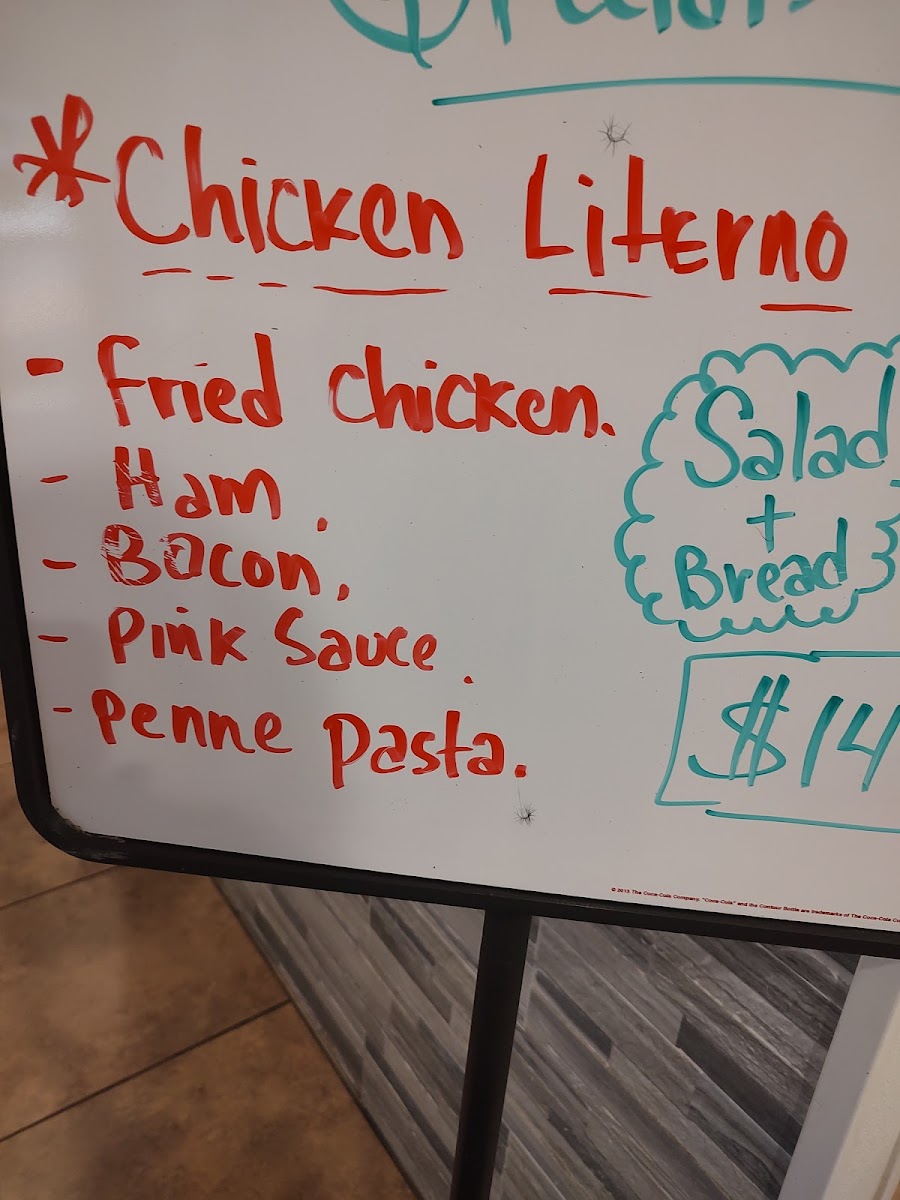 *Chicken Literno
- Fried Chicken.
- Ham.
- Bacon,
- Pink Sauce.
- Penne Pasta.
Salad
+
Bread
$14
© 2013 The Coca-Cola Company. "Coca-Cola" and the Contour Bottle are trademarks of The Coca-Cola Co